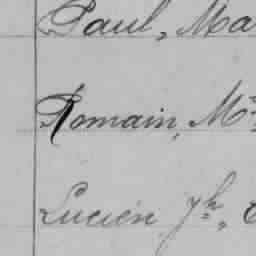 Paul, Ma
Romain, M
Lucien Jh,